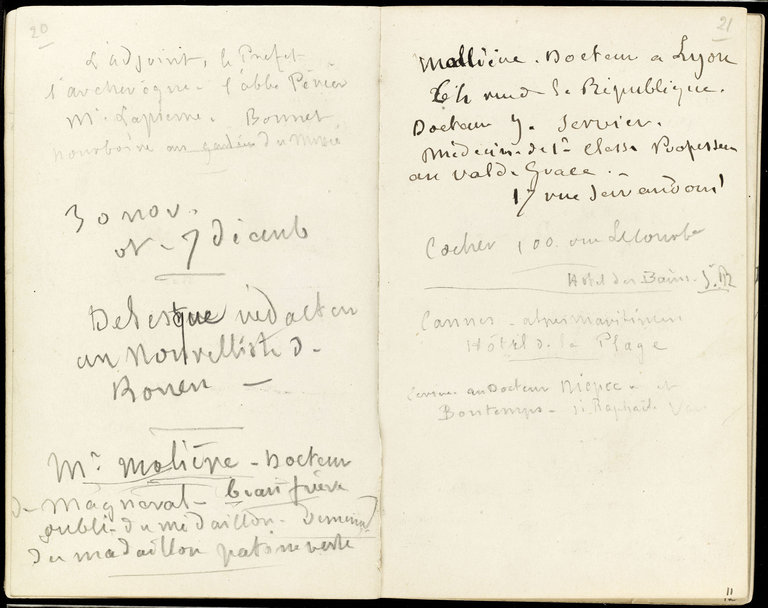 20
L'adjoint, le Prefet
l'archevêque. l'abbé Périer
Mr. Lapierre. Bonnet
pourboire au gardien du Musée
30 nov.
et - 7 décemb
Delesque rédacteur
au Nouvelliste de
Rouen
Mr Molière - Docteur
de Magneval - beau frère
oubli - du médaillon -
du madaillon patine verte
21
Mollière. Docteur a Lyon
64 rue de la République.
Docteur J. Servier.
Médecin. de 1re Classe Professeur
au Val de Grace.
17 rue Servandoni
Cocher 100. rue Lecourbe
Hôtel des Bains. St R
Cannes - alpes maritimes
Hôtel de la Plage
au Docteur Niepce et
Bontemps - St Raphaël. Var
11